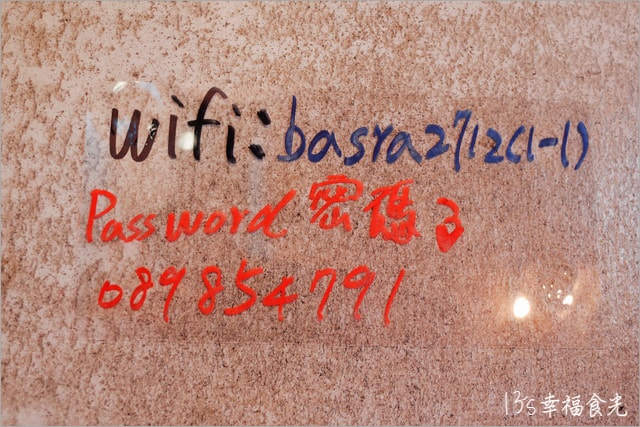 wifi: basra2712(1-1)
Password 密碼:
089854791
13's幸福食光